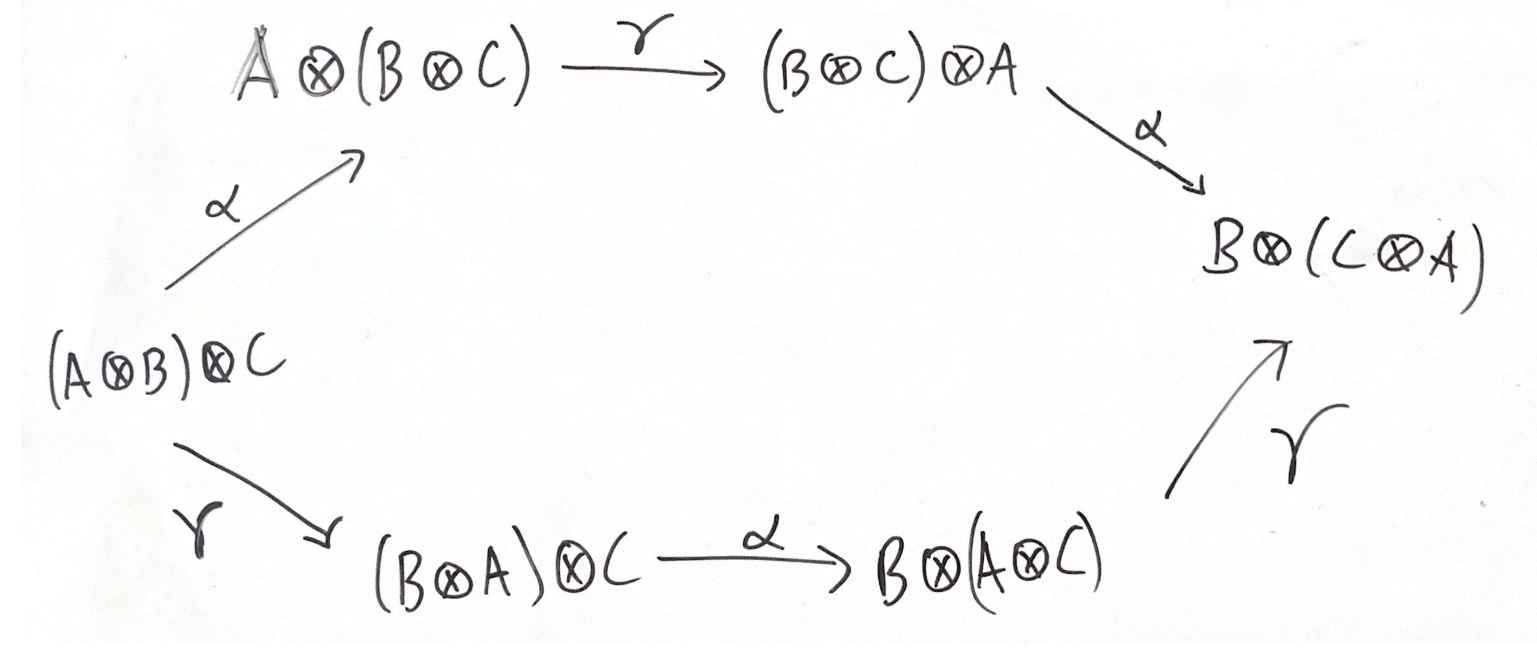 A ⊗ (B ⊗ C) γ → (B ⊗ C) ⊗ A
α α
B ⊗ (C ⊗ A)
(A ⊗ B) ⊗ C
γ γ
(B ⊗ A) ⊗ C α → B ⊗ (A ⊗ C)